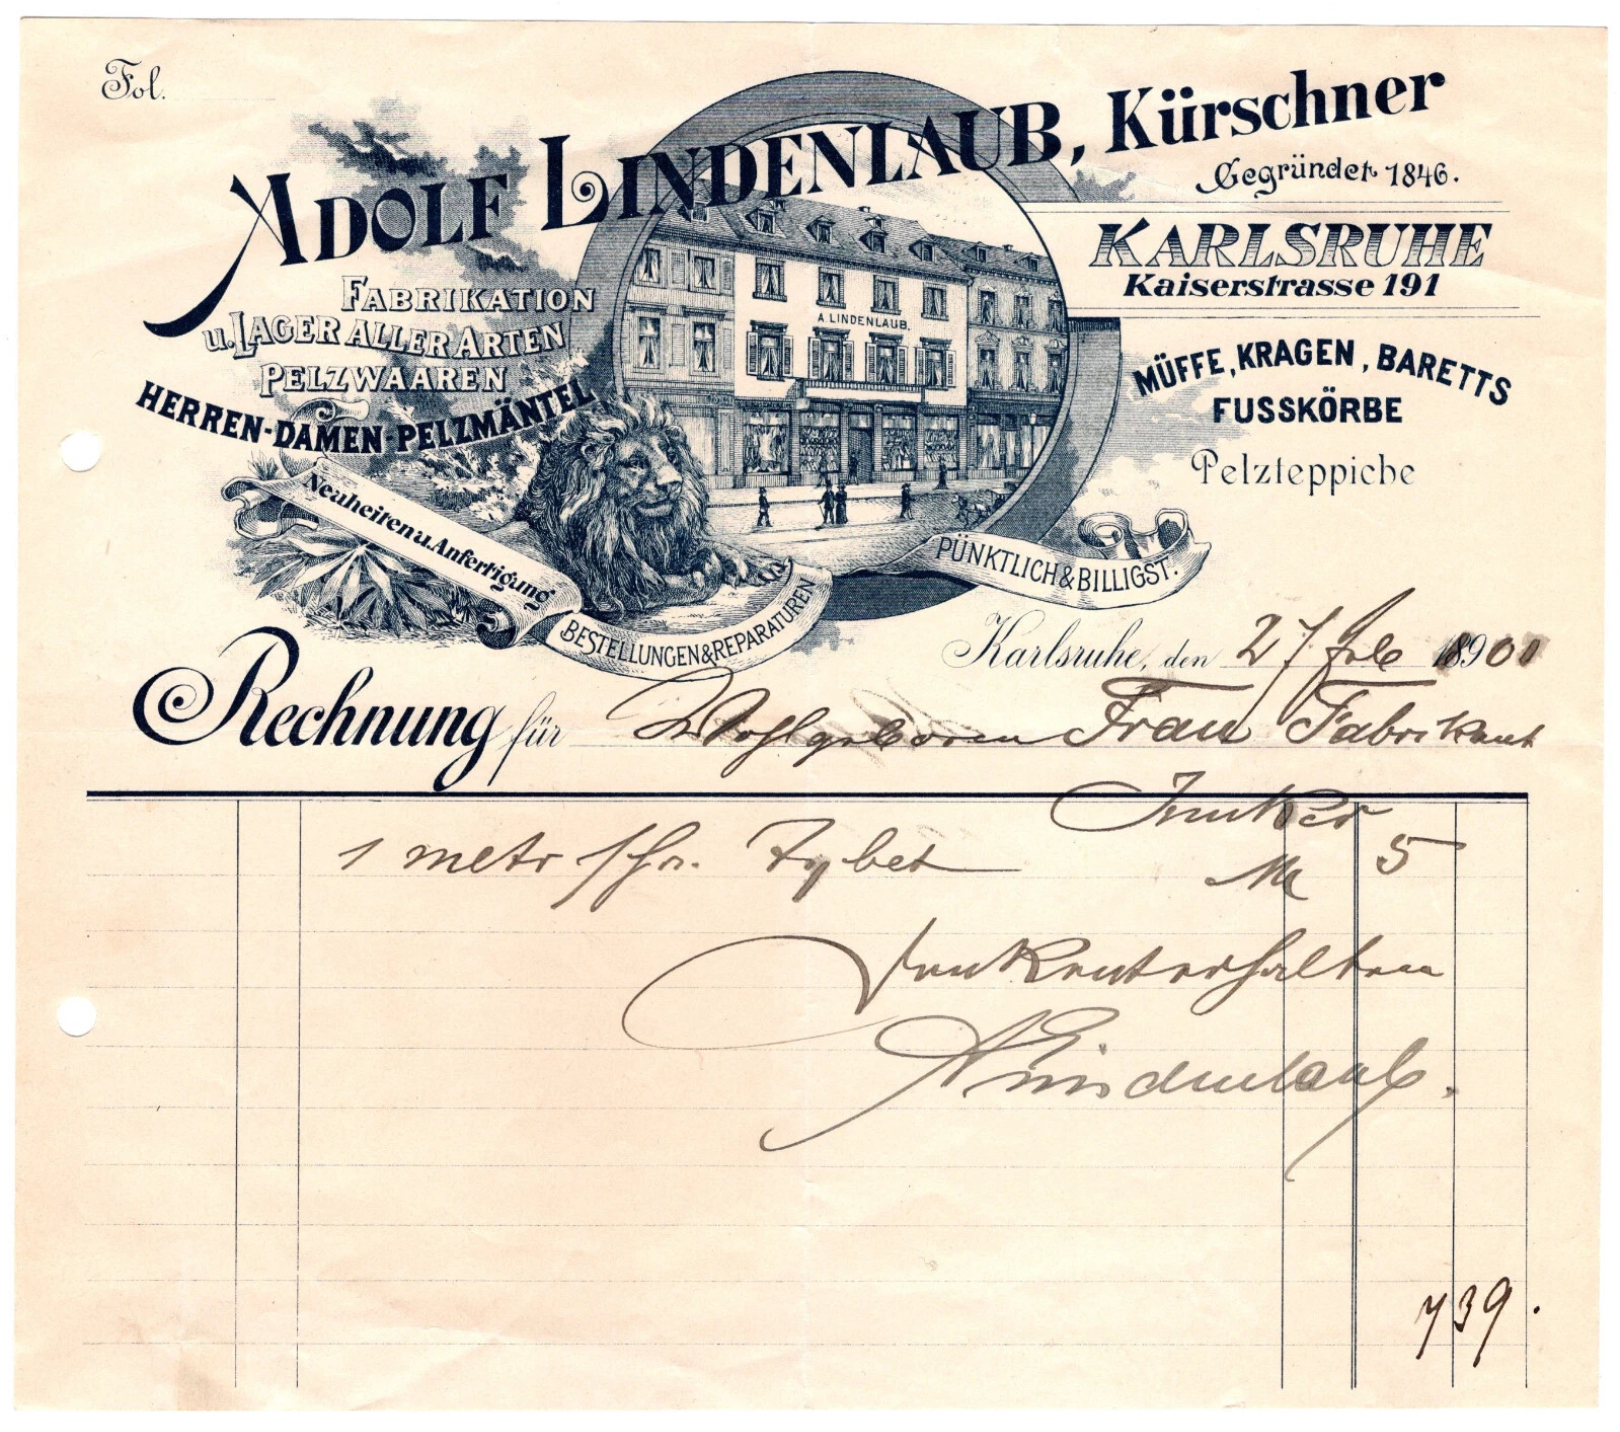 Fol.
ADOLF LINDENLAUB, Kürschner
Gegründet 1846.
KARLSRUHE
Kaiserstrasse 191
FABRIKATION
u. LAGER ALLER ARTEN
PELZWAAREN
HERREN-DAMEN-PELZMÄNTEL
A. LINDENLAUB.
MÜFFE, KRAGEN, BARETTS
FUSSKÖRBE
Pelzteppiche
Neuheiten u. Anfertigung
BESTELLUNGEN & REPARATUREN
PÜNKTLICH & BILLIGST.
Karlsruhe, den 27 Feb 1900
Rechnung für Wohlgeboren Frau Fabrikant
Junker
1 metr schw. Tybet M 5
dankend erhalten
A Lindenlaub.
739.